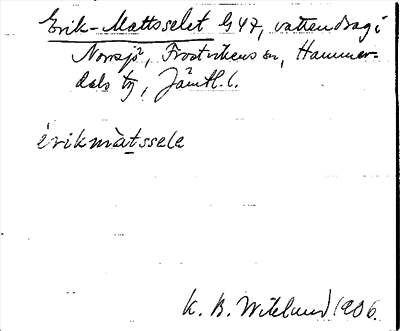 Erik-Mattsselet G 47, vattendrag i
Norrsjö, Frostvikens sn, Hammer-
dals tg, Jämtl. l.
érikmàtssele
K. B. Wiklund 1906.